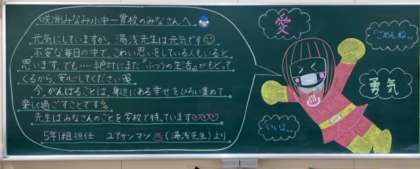 咲洲みなみ小中一貫校のみなさんへ
元気にしていますか。湯浅先生は元気です
不安な毎日の中で、こわい思いをしている人もいると
思います。でも…絶対にまた“ふつうの生活”がもどって
くるから、安心してください
今、がんばることは、身近にある幸せをひろい集めて
楽しく過ごすことです
先生はみなさんのことを学校で待っています
5年1組担任 ユアサンマン(湯浅先生)より
愛
ごめんね…
勇気